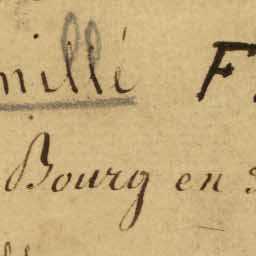 millé F
Bourg en